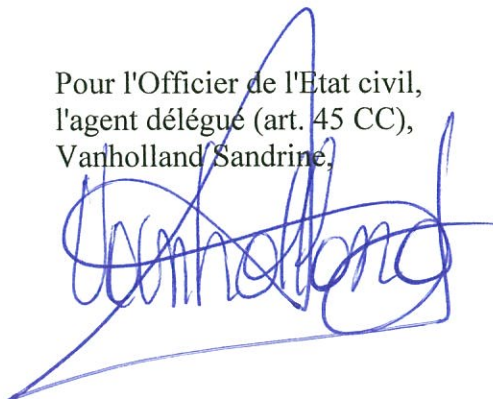 Pour l'Officier de l'Etat civil,
l'agent délégué (art. 45 CC),
Vanholland Sandrine,
Vanholland